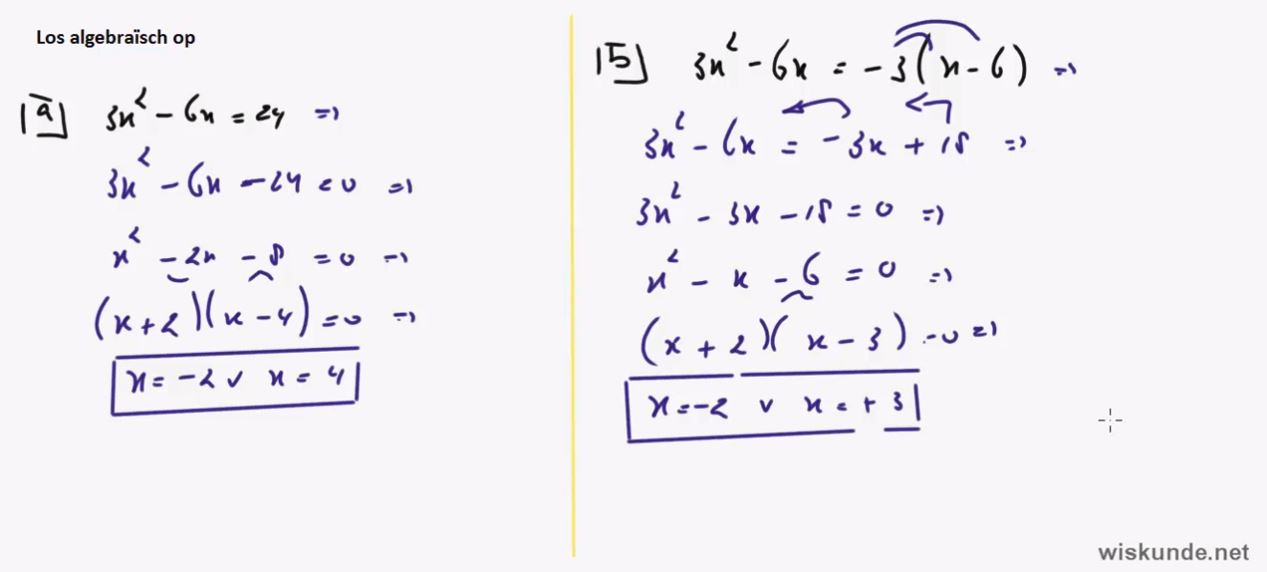 Los algebraïsch op
a) 3x² - 6x = 24 ⇒
3x² - 6x - 24 = 0 ⇒
x² - 2x - 8 = 0 ⇒
(x + 2)(x - 4) = 0 ⇒
x = -2 ∨ x = 4
b) 3x² - 6x = -3(x - 6) ⇒
3x² - 6x = -3x + 18 ⇒
3x² - 3x - 18 = 0 ⇒
x² - x - 6 = 0 ⇒
(x + 2)(x - 3) = 0 ⇒
x = -2 ∨ x = + 3
wiskunde.net